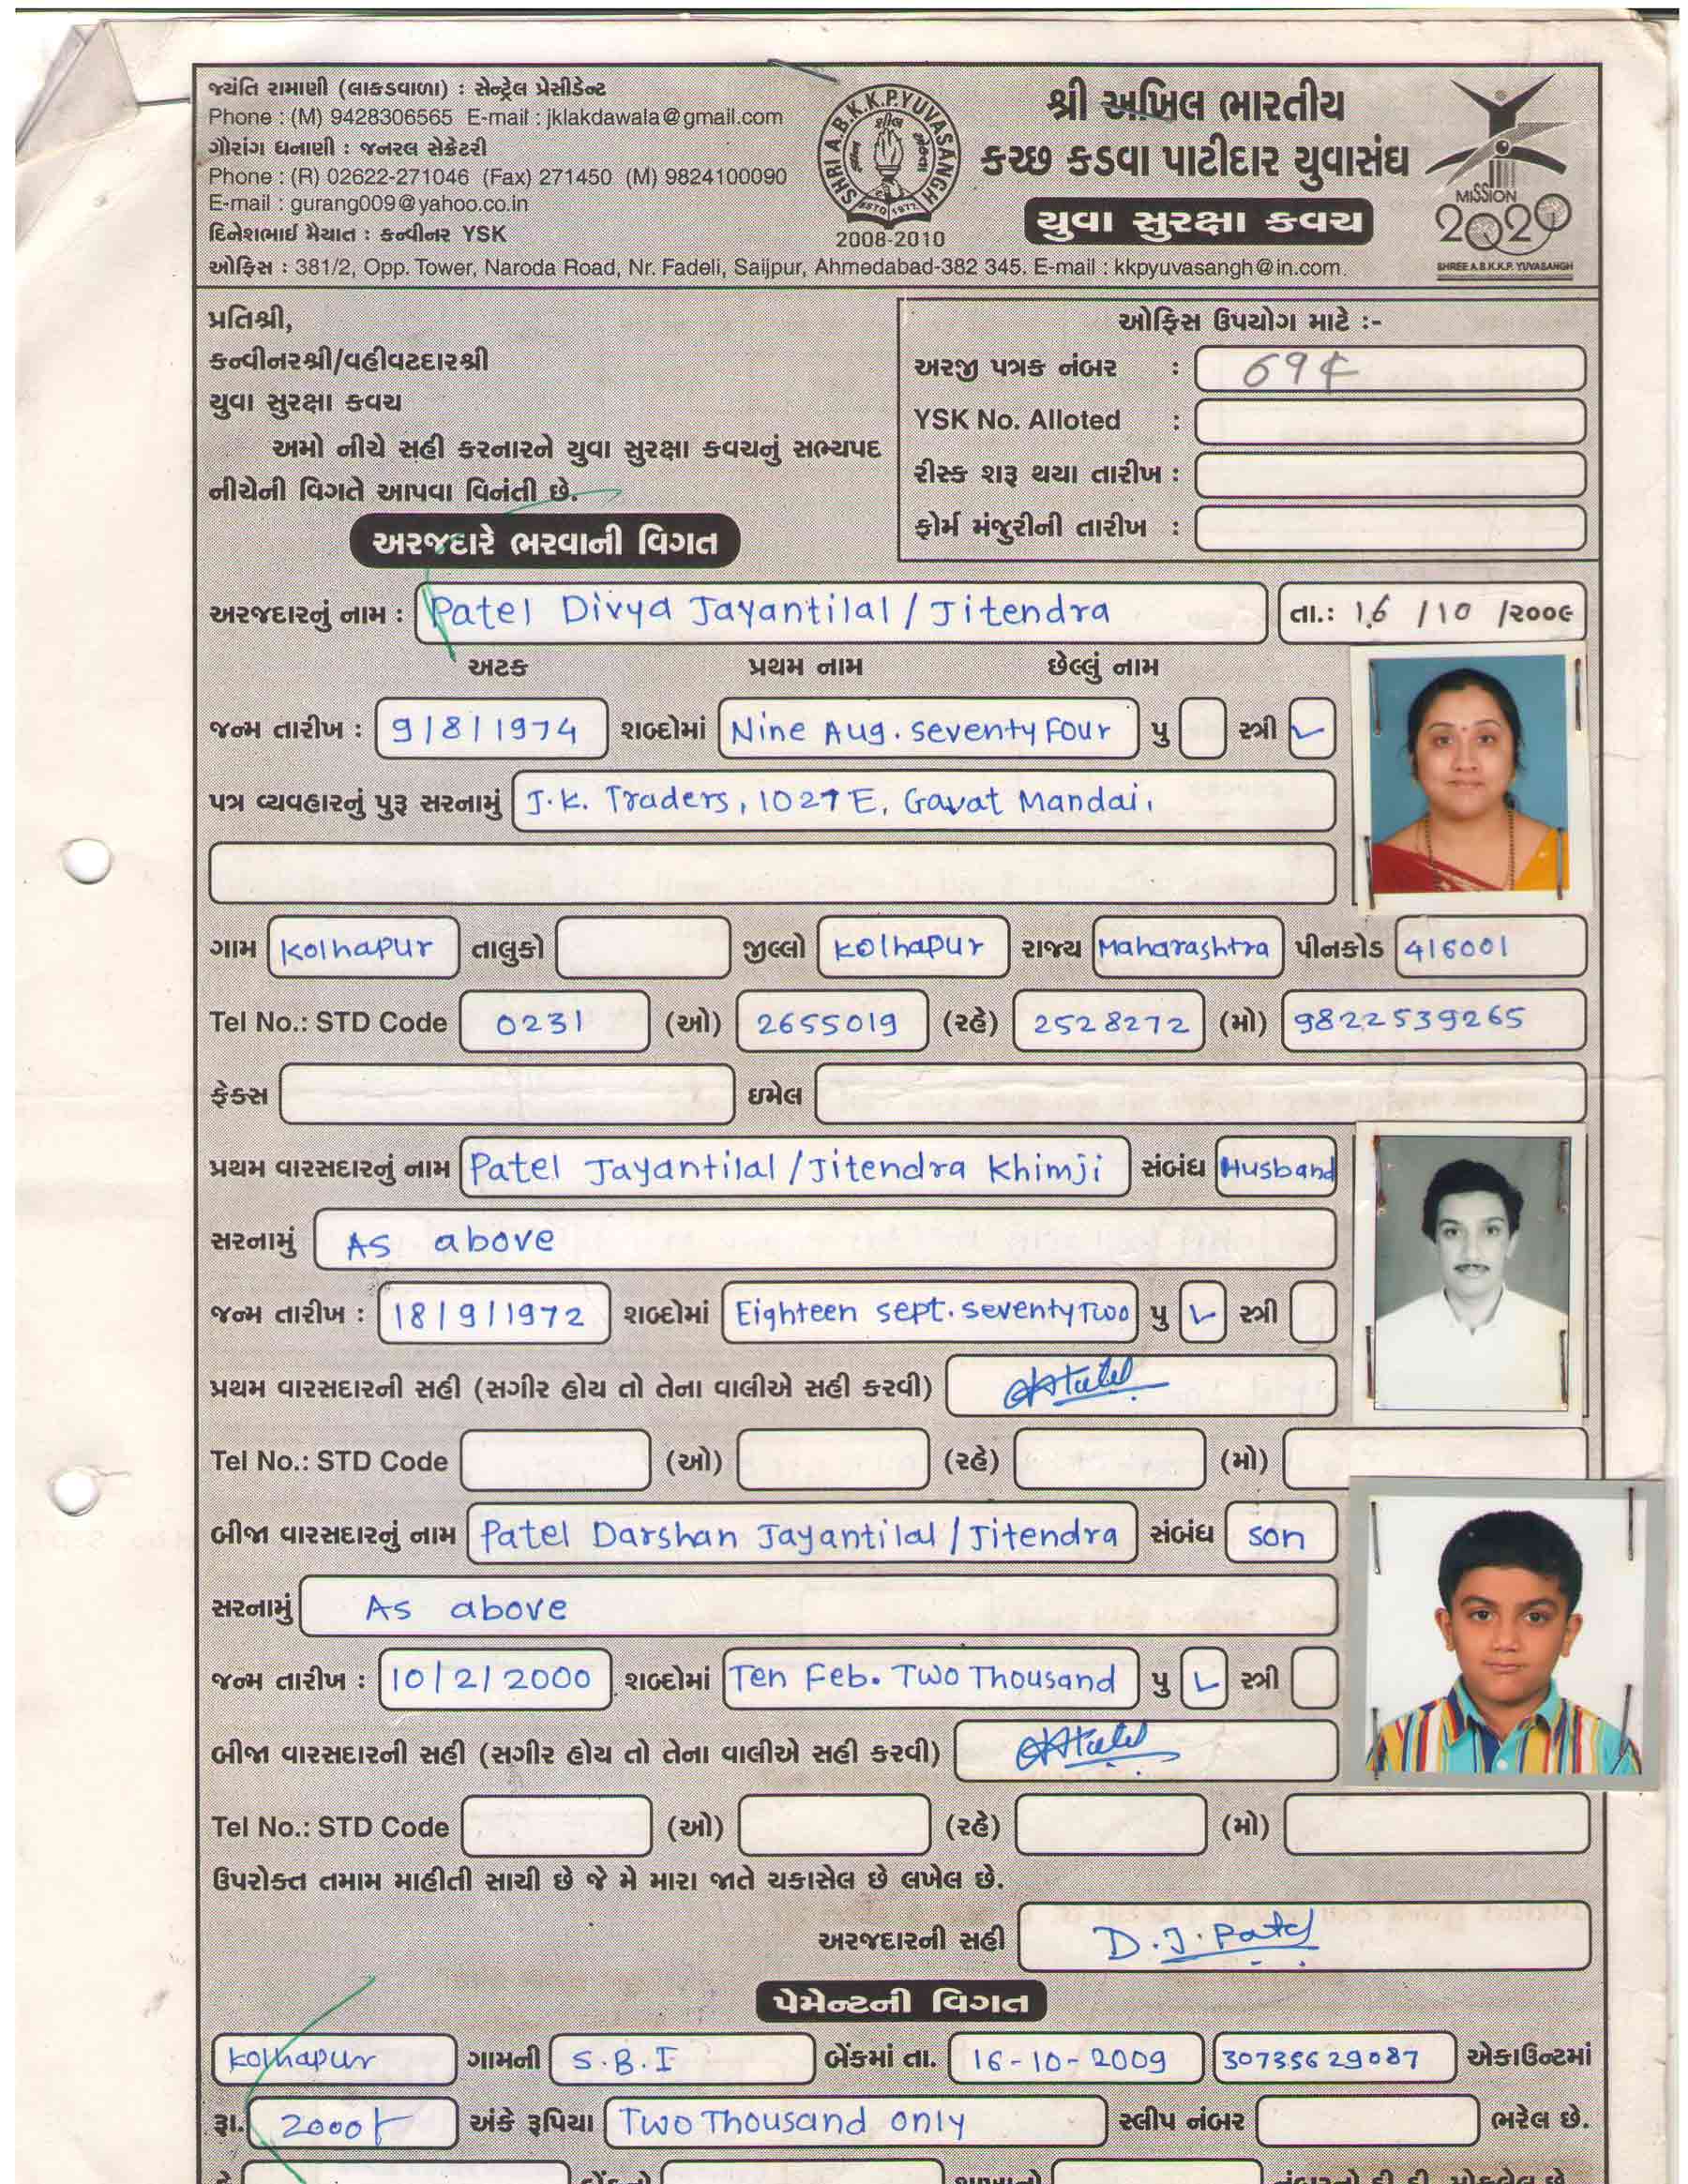 જયંતિ રામાણી (લાકડાવાળા) : સેન્ટ્રેલ પ્રેસીડેન્ટ
Phone : (M) 9428306565 E-mail : jklakdawala@gmail.com
ગૌરાંગ ધનાણી : જનરલ સેક્રેટરી
Phone : (R) 02622-271046 (Fax) 271450 (M) 9824100090
E-mail : gurang009@yahoo.co.in
દિનેશભાઈ મૈયાત : કન્વીનર YSK
SHRI A.B.K.K.P. YUVASANGH
ESTD 1977
2008-2010
શ્રી અખિલ ભારતીય
કચ્છ કડવા પાટીદાર યુવાસંઘ
યુવા સુરક્ષા કવચ
MISSION
2020
SHREE A.B.K.K.P. YUVASANGH
ઓફિસ : 381/2, Opp. Tower, Naroda Road, Nr. Fadeli, Saijpur, Ahmedabad-382 345. E-mail : kkpyuvasangh@in.com.
પ્રતિશ્રી,
કન્વીનરશ્રી/વહીવટદારશ્રી
યુવા સુરક્ષા કવચ
અમો નીચે સહી કરનારને યુવા સુરક્ષા કવચનું સભ્યપદ
નીચેની વિગતે આપવા વિનંતી છે.
ઓફિસ ઉપયોગ માટે :-
અરજી પત્રક નંબર :
YSK No. Alloted :
રીસ્ક શરૂ થયા તારીખ :
ફોર્મ મંજુરીની તારીખ :
અરજદારે ભરવાની વિગત
અરજદારનું નામ : Patel Divya Jayantilal / Jitendra તા.: 16 /10 /૨૦૦૯
અટક પ્રથમ નામ છેલ્લું નામ
જન્મ તારીખ : 9/8/1974 શબ્દોમાં Nine Aug. seventy Four પુ સ્ત્રી ✓
પત્ર વ્યવહારનું પુરૂ સરનામું J.K. Traders, 1027 E, Gavat Mandai,
ગામ Kolhapur તાલુકો જીલ્લો Kolhapur રાજ્ય Maharashtra પીનકોડ 416001
Tel No.: STD Code 0231 (ઓ) 2655019 (રહે) 2528272 (મો) 9822539265
ફેક્સ ઇમેલ
પ્રથમ વારસદારનું નામ Patel Jayantilal / Jitendra Khimji સંબંધ Husband
સરનામું As above
જન્મ તારીખ : 18/9/1972 શબ્દોમાં Eighteen sept. seventy Two પુ ✓ સ્ત્રી
પ્રથમ વારસદારની સહી (સગીર હોય તો તેના વાલીએ સહી કરવી)
Tel No.: STD Code (ઓ) (રહે) (મો)
બીજા વારસદારનું નામ Patel Darshan Jayantilal / Jitendra સંબંધ son
સરનામું As above
જન્મ તારીખ : 10/2/2000 શબ્દોમાં Ten Feb. Two Thousand પુ ✓ સ્ત્રી
બીજા વારસદારની સહી (સગીર હોય તો તેના વાલીએ સહી કરવી)
Tel No.: STD Code (ઓ) (રહે) (મો)
ઉપરોક્ત તમામ માહીતી સાચી છે જે મે મારા જાતે ચકાસેલ છે લખેલ છે.
અરજદારની સહી D.J. Patel
પેમેન્ટની વિગત
Kolhapur ગામની S.B.I બેંકમાં તા. 16-10-2009 30735629087 એકાઉન્ટમાં
રૂા. 2000/- અંકે રૂપિયા Two Thousand only સ્લીપ નંબર ભરેલ છે.